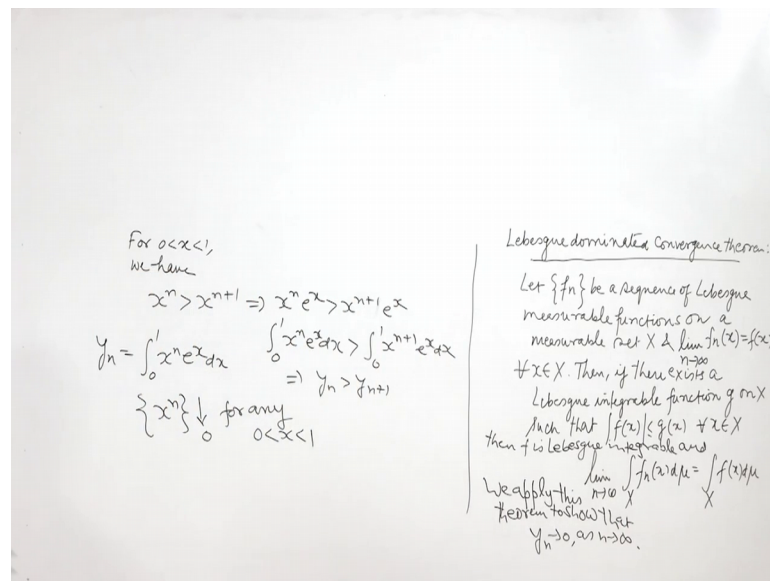 For 0<x<1,
we have
xⁿ > xⁿ⁺¹ ⇒ xⁿeˣ > xⁿ⁺¹eˣ
yₙ = ∫₀¹ xⁿeˣdx
∫₀¹ xⁿeˣdx > ∫₀¹ xⁿ⁺¹eˣdx
⇒ yₙ > yₙ₊₁
{xⁿ} ↓ 0 for any
0<x<1
Lebesgue dominated convergence theorem:
Let {fn} be a sequence of Lebesgue
measurable functions on a
measurable set X & lim n→∞ fn(x)=f(x)
∀ x∈X. Then, if there exists a
Lebesgue integrable function g on X
such that |f(x)| ≤ g(x) ∀ x∈X
then f is Lebesgue integrable and
lim n→∞ ∫X fn(x)dμ = ∫X f(x)dμ
We apply this
theorem to show that
yn→0, as n→∞.